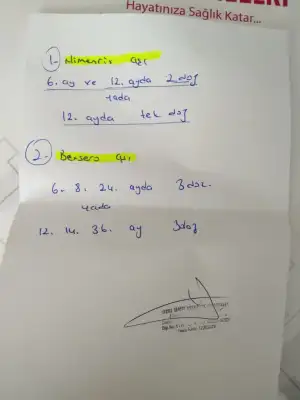 Hayatınıza Sağlık Katar...
1- Nimenrix aşı
6. ay ve 12. ayda 2 doz
yada
12. ayda tek doz
2. Bexsero aşı
6. 8. 24. ayda 3 doz.
yada
12. 14. 36. ay 3 doz